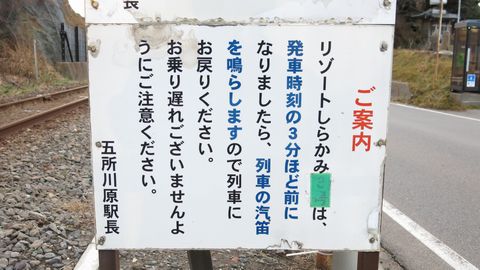 長
ご案内
リゾートしらかみ号は、
発車時刻の3分ほど前に
なりましたら、列車の汽笛
を鳴らしますので列車に
お戻りください。
お乗り遅れございませんよ
うにご注意ください。
五所川原駅長